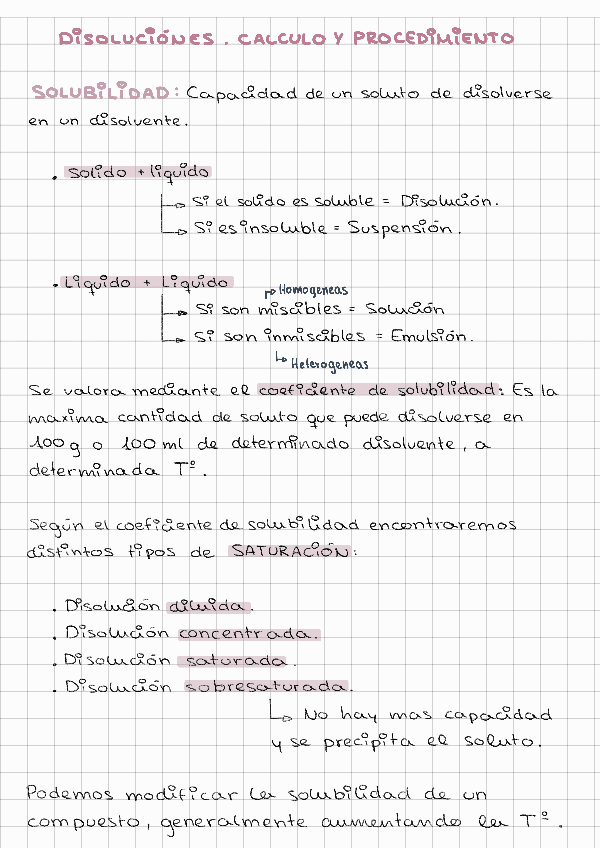 DISOLUCIÓNES. CALCULO Y PROCEDIMIENTO
SOLUBILIDAD: Capacidad de un soluto de disolverse
en un disolvente.
. Solido + liquido
↳ Si el solido es soluble = Disolución.
↳ Si es insoluble = Suspensión.
. Liquido + Liquido
↱ Homogeneas
↳ Si son miscibles = Solución
↳ Si son inmiscibles = Emulsión.
↳ Heterogeneas
Se valora mediante el coeficiente de solubilidad: Es la
maxima cantidad de soluto que puede disolverse en
100 g o 100 ml de determinado disolvente, a
determinada Tº.
Según el coeficiente de solubilidad encontraremos
distintos tipos de SATURACIÓN:
. Disolución diluida.
. Disolución concentrada.
. Disolución saturada.
. Disolución sobresaturada.
↳ No hay mas capacidad
y se precipita el soluto.
Podemos modificar la solubilidad de un
compuesto, generalmente aumentando la Tº.